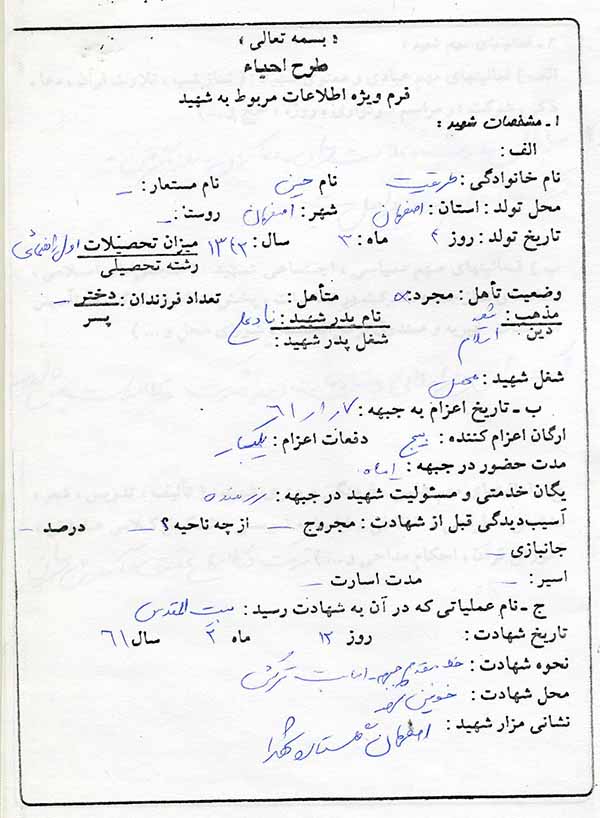 « بسمه تعالی »
طرح احیاء
فرم ویژه اطلاعات مربوط به شهید
۱ـ مشخصات شهید :
الف :
نام خانوادگی : طریقت نام حسین نام مستعار : ـ
محل تولد : استان : اصفهان شهر : اصفهان روستا : ـ
تاریخ تولد : روز ۴ ماه : ۳ سال : ۱۳۴۳ میزان تحصیلات اول راهنمائی
رشته تحصیلی
وضعیت تأهل : مجرد : × متأهل : تعداد فرزندان : دختر ـ
پسر
مذهب : شیعه نام پدر شهید : نادعلی
دین : اسلام شغل پدر شهید :
شغل شهید : محصل
ب ـ تاریخ اعزام به جبهه : ۷ ار ۱ ر ۶۱
ارگان اعزام کننده : بسیج دفعات اعزام : یکبار
مدت حضور در جبهه : ۱ماه
یگان خدمتی و مسئولیت شهید در جبهه : رزمنده
آسیب‌دیدگی قبل از شهادت : مجروح ـ از چه ناحیه ؟ ـ درصد ـ
جانبازی ـ
اسیر : ـ مدت اسارت ـ
ج ـ نام عملیاتی که در آن به شهادت رسید : بیت المقدس
تاریخ شهادت : روز ۱۲ ماه ۲ سال ۶۱
نحوه شهادت : خط مقدم جبهه ـ اصابت ترکش
محل شهادت : خونین شهر
نشانی مزار شهید : اصفهان گلستان شهدا